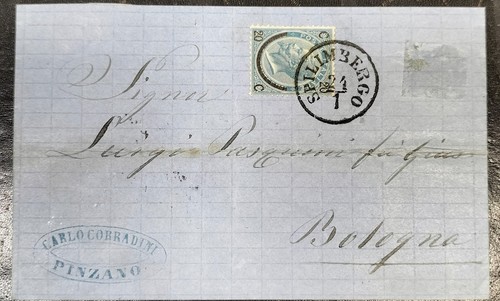 C 20
20 C
POSTE
SPILIMBERGO
24
1
Signor
Luigi Pasquini
Bologna
CARLO CORRADINI
PINZANO